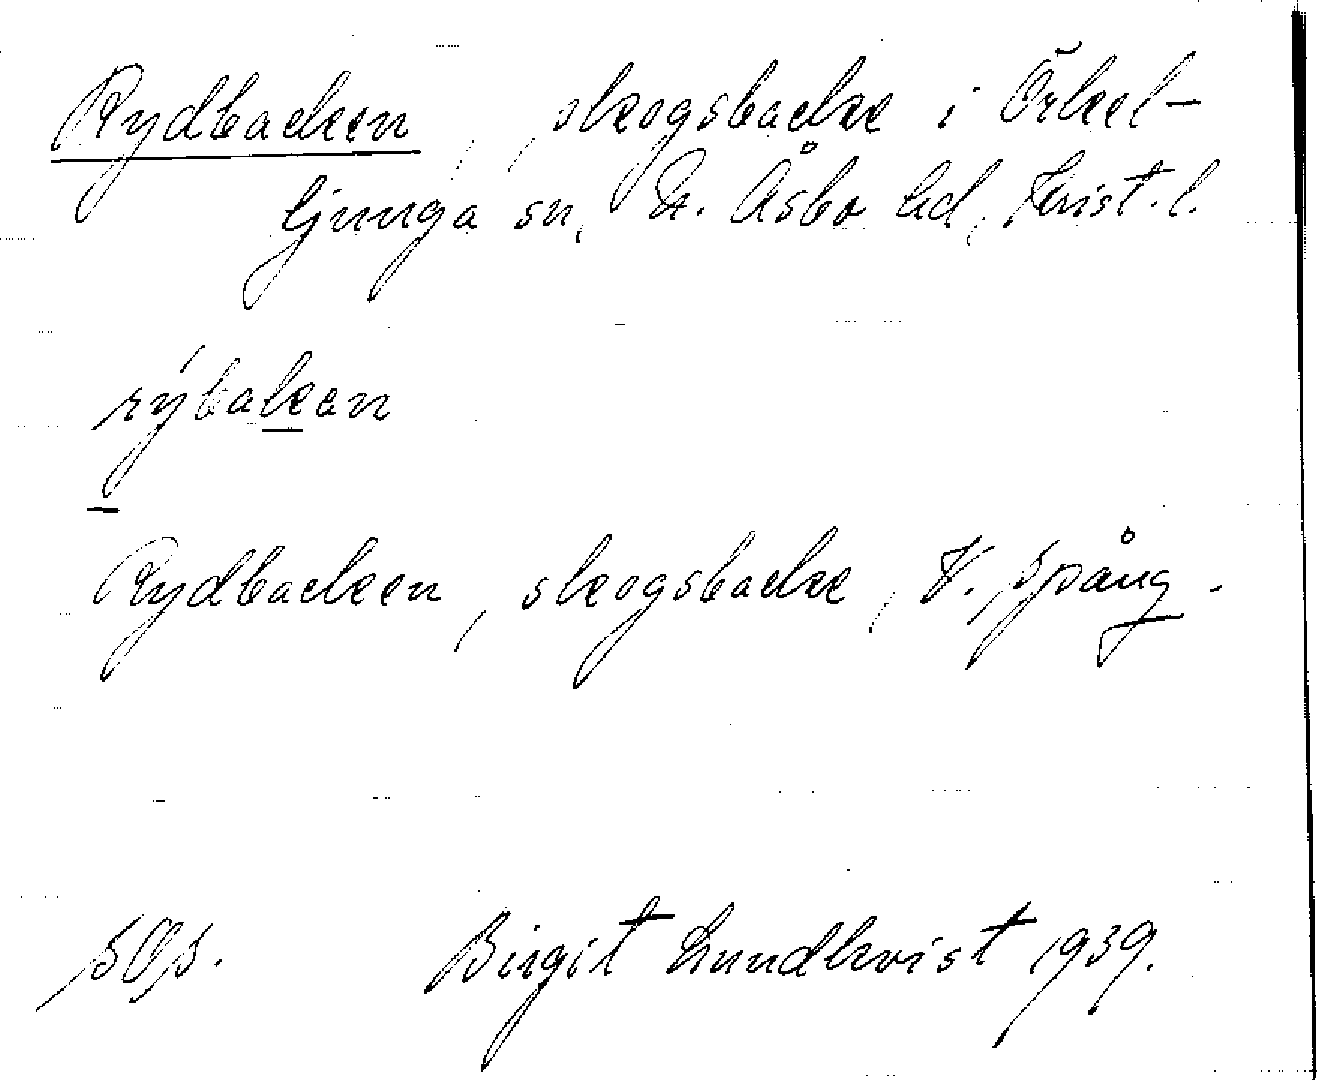 Rydbacken, skogsbacke i Örkel-
ljunga sn, N. Åsbo hd, Krist. l.
rýbakan
Rydbacken, skogsbacke, V. Spång.
SOS. Birgit Lundkvist 1939.